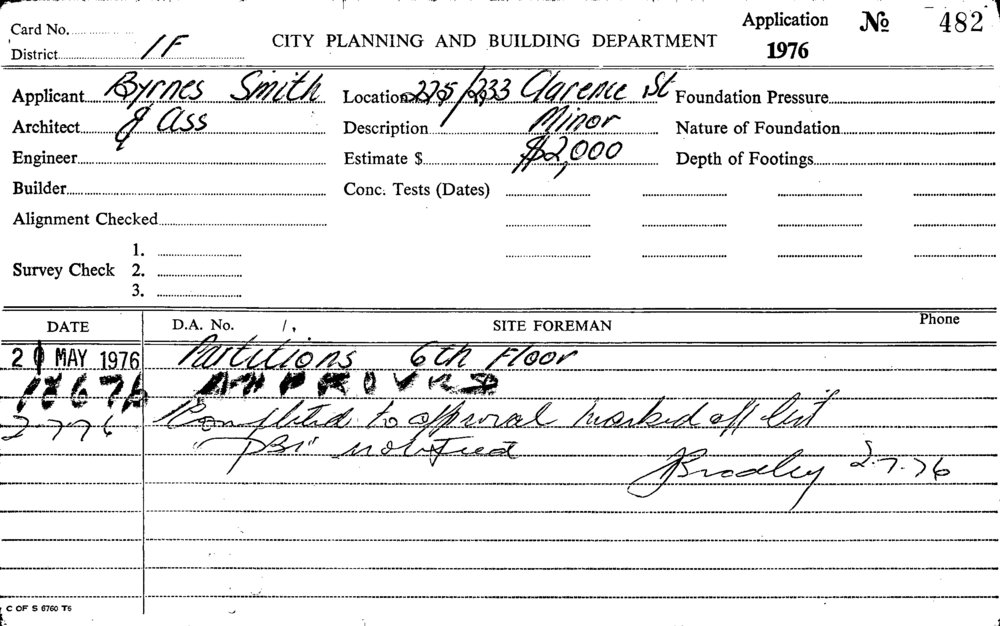 Card No. Application № 482
District 1F CITY PLANNING AND BUILDING DEPARTMENT 1976
Applicant Byrnes Smith Location 225/233 Clarence St Foundation Pressure
Architect & Ass Description Minor Nature of Foundation
Engineer Estimate $ $2,000 Depth of Footings
Builder Conc. Tests (Dates)
Alignment Checked
1.
Survey Check 2.
3.
DATE D.A. No. SITE FOREMAN Phone
20 MAY 1976 Partitions 6th Floor
18 6 76 APPROVED
2 7 76 Completed to approval marked off list
"DBI" notified
JBradley 2.7.76
C OF S 6760 T6